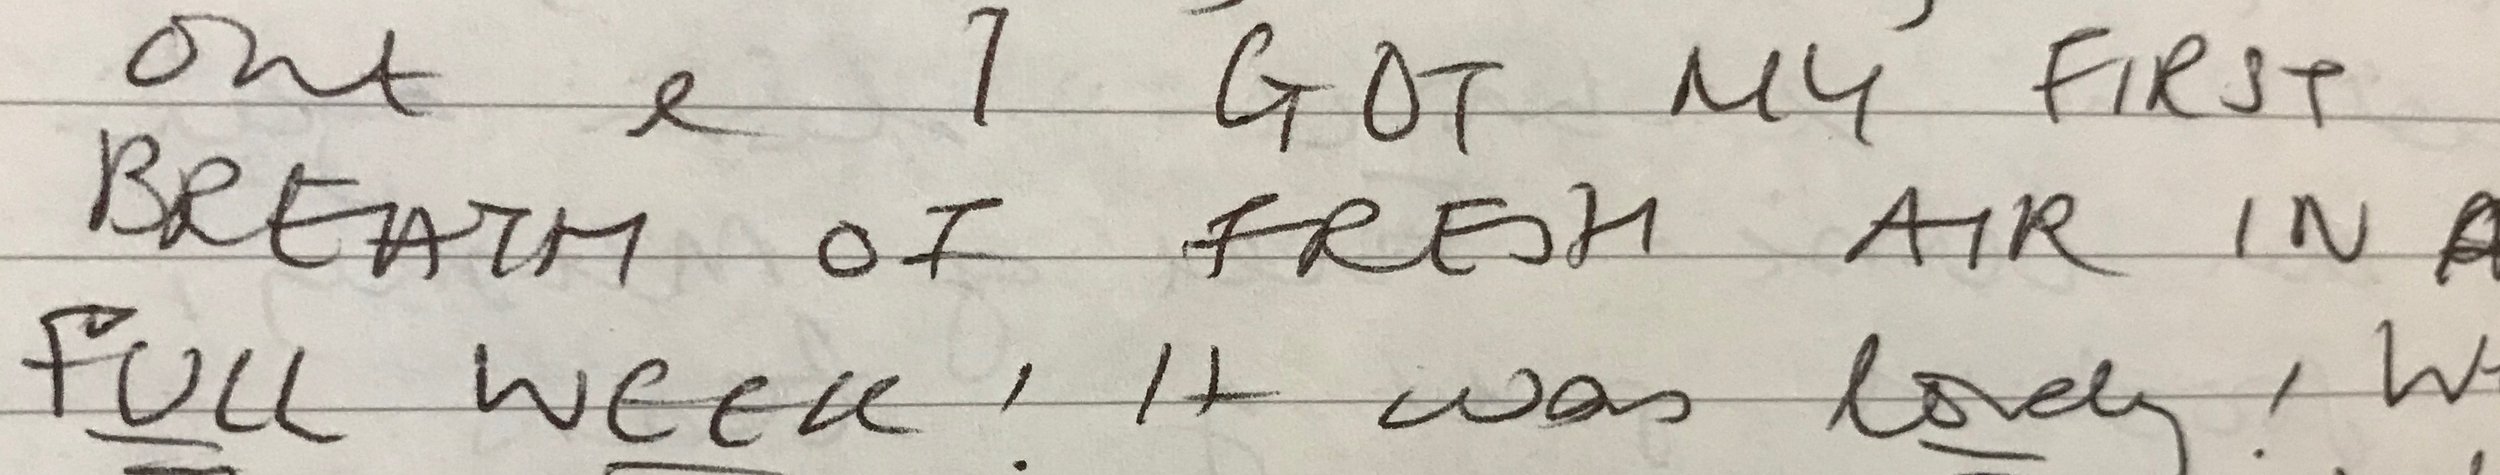 out & I GOT MY FIRST
BREATH OF FRESH AIR IN A
FULL WEEK! It was lovely!